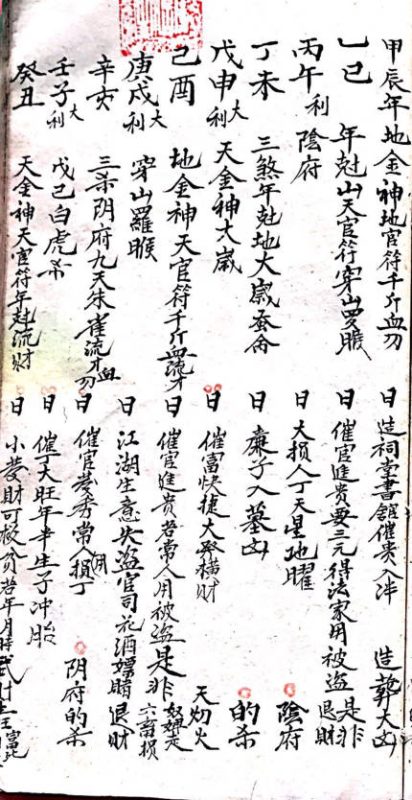 甲辰年地金神地官符千斤血刃 日造祠堂書館催貴入泮 造葬大凶
乙巳 年尅山天官符穿山罗睺 日催官進貴要三元得法家用被盗是非退財
丙午利 陰府 日大損人丁天星地曜 陰府
丁未 三煞年尅地大歲 日廉子入墓凶 的杀
戊申大利 天金神大歲 日催富快捷大發横財
己酉 地金神天官符千斤血流才 日催官進貴若常人用被盗是非
庚戍大利 穿山羅睺 日江湖生意失盗官司花酒嫖賭退財 六畜損
辛亥 三杀阴府九天朱雀流才血刃 日催官發秀常人用損丁 阴府的杀
壬子大利 戊己白虎杀 日催丁大旺年辛生子冲胎
癸丑 天金神天官符年尅流财 日小發財可救貧若年月時